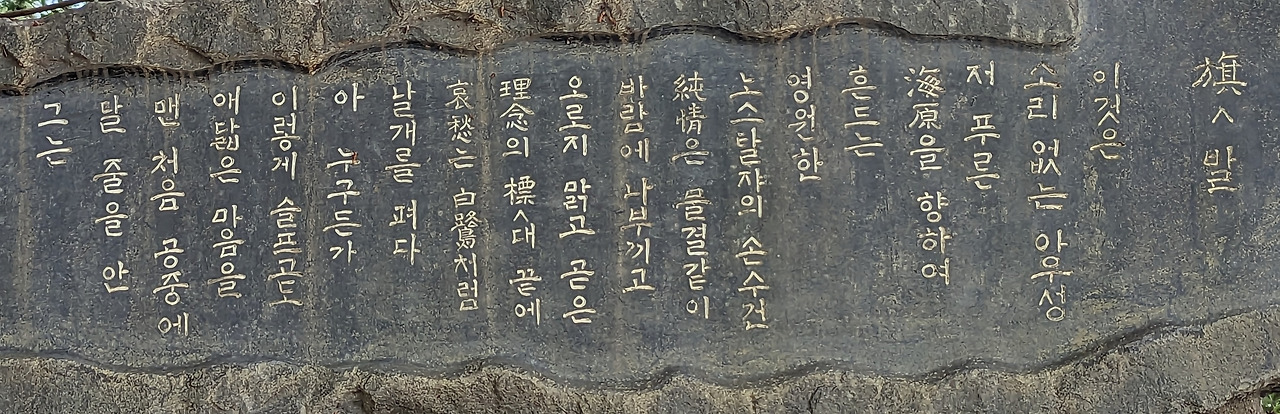 旗ㅅ발
이것은
소리 없는 아우성
저 푸른
海原을 향하여
흔드는
영원한
노스탈쟈의 손수건
純情은 물결같이
바람에 나부끼고
오로지 맑고 곧은
理念의 標ㅅ대 끝에
哀愁는 白鷺처럼
날개를 펴다
아 누구든가
이렇게 슬프고도
애닯은 마음을
맨 처음 공중에
달 줄을 안
그는